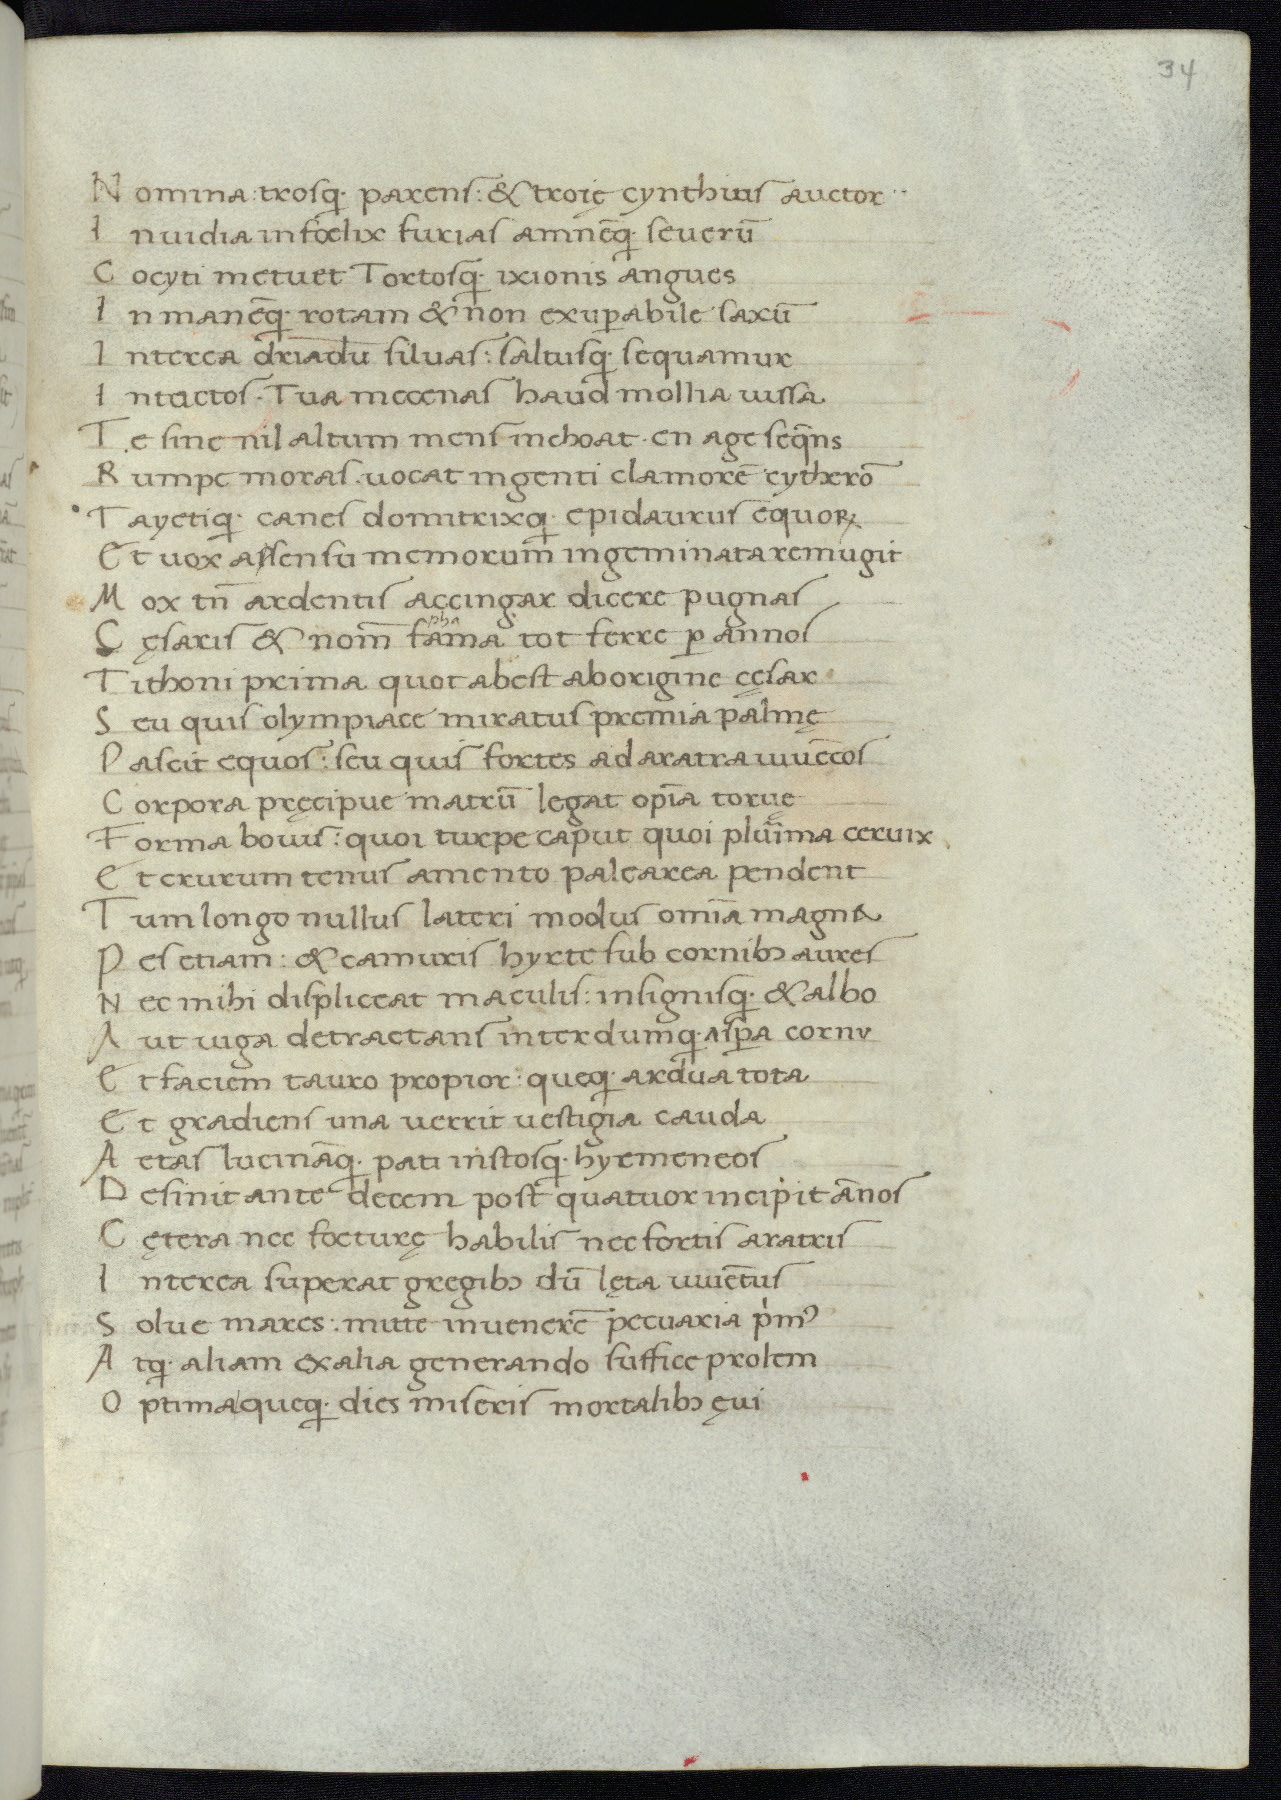 34
Nomina: trosq; parens: & troię cynthius auctor
Inuidia infœlix furias amnēq; seuerū
Cocyti metuet Tortosq; ixionis angues
Inmanēq; rotam & non exuꝑabile saxū
Interea driadū siluas: saltusq; sequamur
Intactos. Tua mecenas haud mollia iussa
Te sine nil altum mens inchoat. en age seq̄ns
Rumpe moras. uocat ingenti clamorē cytherō
Tayetiq; canes domitrixq; epidaurus equoꝝ
Et uox assensu memorum ingeminata remugit
Mox tn̄ ardentis accingar dicere pugnas
Cęsaris & nom̄ fama tot ferre ꝑ annos
Tithoni prima quot abest ab origine cęsar
Seu quis olympiace miratus premia palmę
Pascit equos: seu quis fortes ad aratra iuuēcos
Corpora pręcipue matrū legat opīa toruę
Forma bouis: quoi turpe caput quoi plurīma ceruix
Et crurum tenus amento palearea pendent
Tum longo nullus lateri modus omīa magna
Pes etiam: & camuris hyrte sub cornibꝫ aures
Nec mihi displiceat maculis: insignisq; & albo
Aut iuga detractans interdumq; asꝑa cornu
Et faciem tauro propior: queq; ardua tota
Et gradiens ima uerrit uestigia cauda
Aetas lucināq; pati iustosq; hyemeneos
Desinit ante decem post quatuor incipit ānos
Cętera nec foeturę habilis nec fortis aratris
Interea superat gregibꝫ dū lęta iuuētus
Solue mares: mitte in uenerē pecuaria pim⁹
Atq; aliam ex alia generando suffice prolem
Optima queq; dies miseris mortalibꝫ ęui